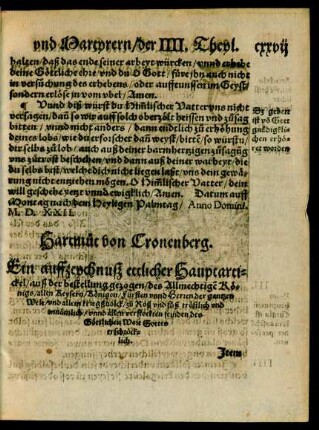 vnd Martyrern/der IIII. Theyl. cxxvij
halten/daß das ende seiner arbeyt würcken/ vnnd erhebe
deine Göttliche ehre/vnd du ô Gott/ füre jhn auch nicht
in versüchung des erhebens/oder auffmutzens im Geyst/
sondern erlöse in vom vbel/ Amen.
Vnnd diß würst du Himlischer Vatter vns nicht
versagen/ daß so wir auff solch oberzölt heissen vnd züsag
bitten/ vnnd nicht anders/ dann endtlich zu erhöhung
deines lobs/ wie du erforscher daß weyst/ bitte/ so würstu/
dir selbs zu lob/ auch auß deiner barmhertzigen züsagūg
vns zürrost beschehen/ vnd dann auß deiner warheyt/ die
du selbs bist/ welche dich nicht liegen laßt/ vns dein gewä-
rung nicht entziehen mögen/ O Himlischer Vatter/ dein
will geschehe yetz vnd ewigklich/ Amen. Datum auff
Montag nach dem Heyligen Palmtag/ Anno Domini.
M. D. XXII.
Dz gebett
ist võ Gott
gnädigkli-
chen erhö-
ret worden
Hartmůt von Cronenberg.
Ein auffzeychnuß etlicher Hauptarti-
ckel/ auß der bestellung gezogen/ des Allmechtigē Kö-
nigs/ aller Keysern/ Königen/ Fürsten vnnd Herren der gantzen
Welt/ vnd allem kriegßuolck/ zu Roß vnd füß tröstlich vnd
annämlich/ vnnd allen verstockten feynden des
Göttlichen Wort Gottes
erschröck-
lich.
Item